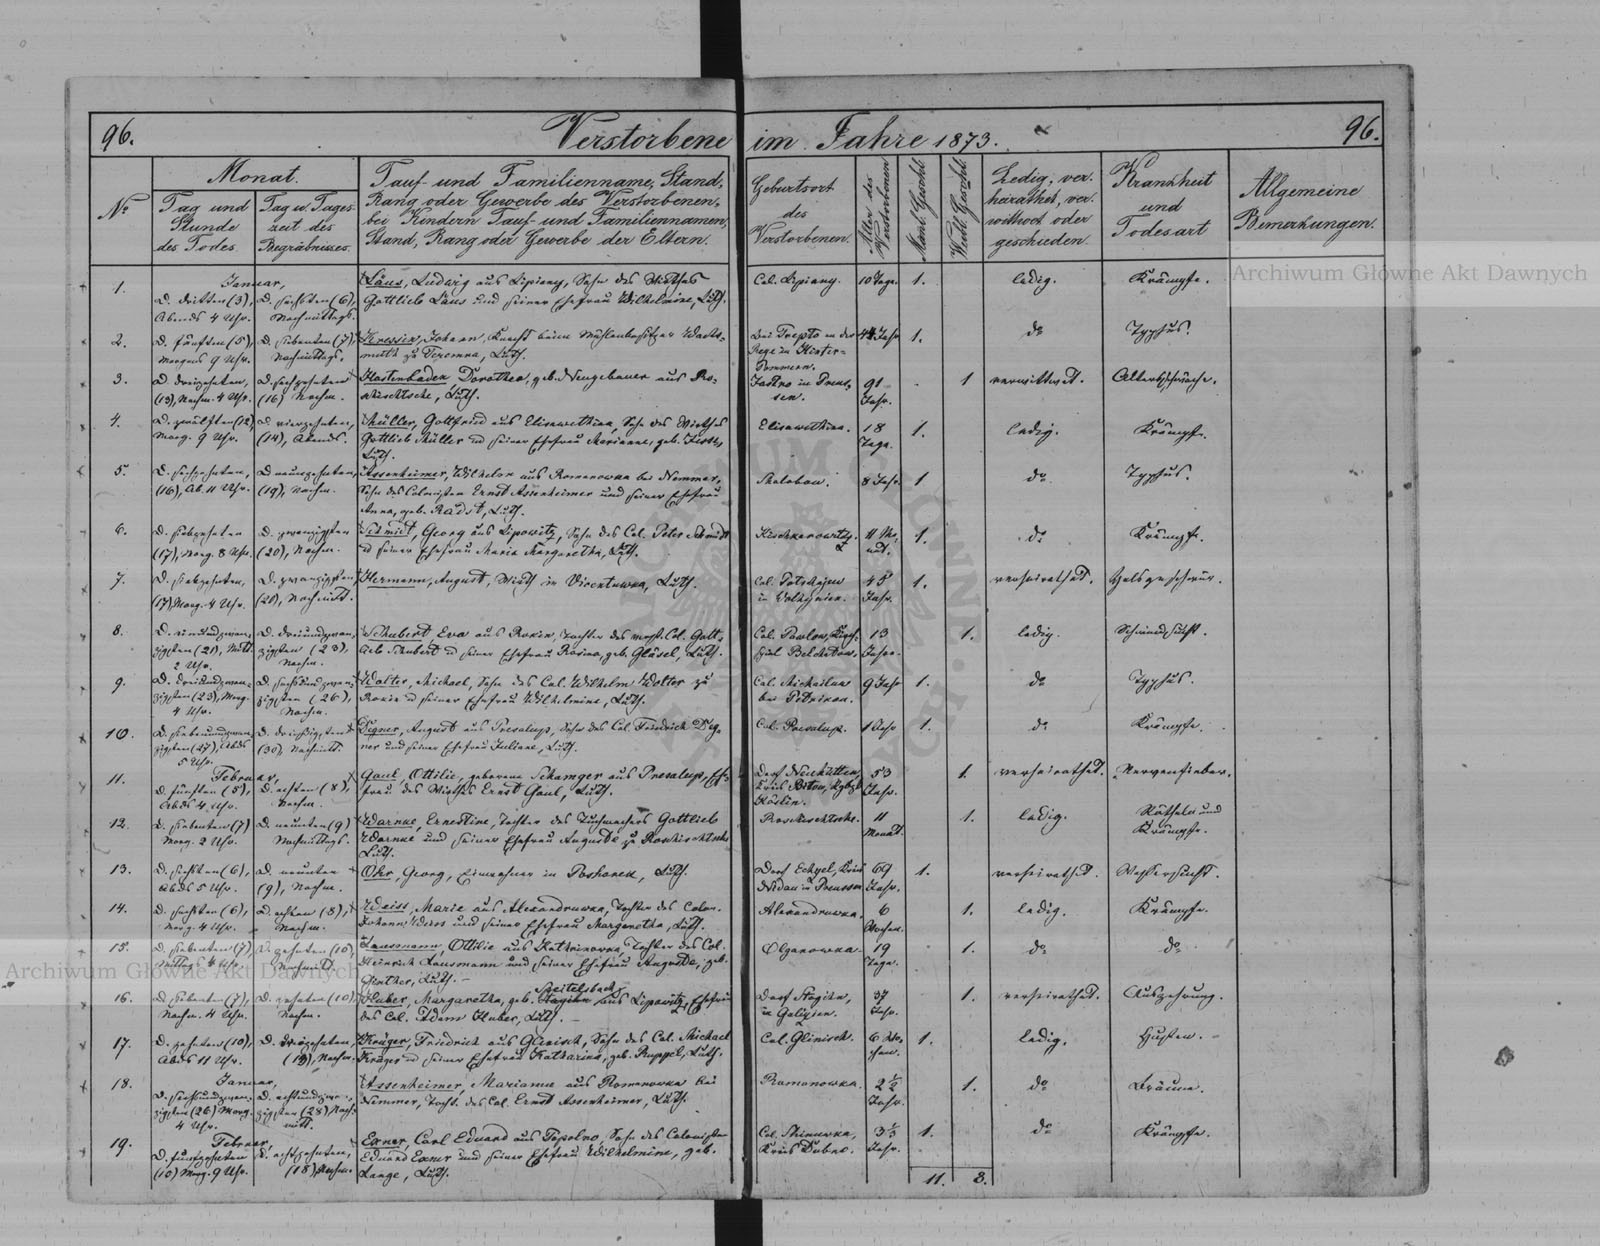 96.
Verstorbene im Jahre 1873.
96.
Nº
Monat.
Tag und Stunde des Todes
Tag u. Tageszeit des Begräbnisses
Tauf- und Familienname, Stand,
Rang oder Gewerbe des Verstorbenen,
bei Kindern Tauf- und Familiennamen,
Stand, Rang oder Gewerbe der Eltern.
Geburtsort
des
Verstorbenen.
Alter des Verstorbenen
Männl. Geschl.
Weibl. Geschl.
Ledig, ver-
heirathet, ver-
wittwet oder
geschieden
Krankheit
und
Todesart
Allgemeine
Bemerkungen.
1.
Januar,
D. dritten (3),
Abends 4 Uhr.
D. sechsten (6),
Nachmittags.
Läus, Ludwig aus Lipiany, Sohn des Wirthes
Gottlieb Läus und seiner Ehefrau Wilhelmine, Luth.
Col. Lipiany.
10 Tage.
1.
ledig.
Krämpfe.
2.
D. fünften (5),
Morgens 9 Uhr.
D. siebenten (7)
Nachmittags.
Johann, Knecht beim Mühlenbesitzer
zu Luth.
Bei Trepto in der
Rega in Hinter-
Pommern.
44 Jahr
1.
do
Typhus.
3.
D. dreizehnten,
(13), Nachm. 4 Uhr.
D. sechzehnten
(16) Nachm.
Kastenbaden, Dorothea, geb. Neugebauer aus Ro-
schischtsche, Luth.
in Preus-
sen.
91
Jahr.
1
verwittwet.
Altersschwäche.
4.
D. zwölften (12)
Morg. 9 Uhr.
D. vierzehnten,
(14), Abends.
Müller, Gottfried aus Elisawethina, Sohn des Wirthes
Gottlieb Müller u seiner Ehefrau Marianne, geb.
Luth.
Elisawethina.
18
Tage.
1.
ledig.
Krämpfe.
5.
D. sechzehnten,
(16), Ab. 11 Uhr.
D. neunzehnten,
(19), Nachm.
Assenheimer, Wilhelm aus Romanowka bei Nemmer,
Sohn des Colonisten Ernst Assenheimer und seiner Ehefrau
Anna, geb. Radst, Luth.
8 Jahr.
1
do
Typhus.
6.
D. siebzehnten
(17), Morg. 8 Uhr.
D. zwanzigsten
(20), Nachm.
Schmidt, Georg aus Lipowitz, Sohn des Col. Peter Schmidt
u seiner Ehefrau Maria Margaretha, Luth.
11 Mo-
nat.
1.
do
Krämpfe.
7.
D. siebzehnten,
(17), Morg. 4 Uhr.
D. zwanzigsten
(20), Nachmitt.
Hermann, August, Wirth in Vincentuwka, Luth.
Col.
in Volhynien.
45
Jahr.
1.
verheirathet.
Halsgeschwür.
8.
D. einundzwan-
zigsten (21), Mitt.
2 Uhr.
D. dreiundzwan-
zigsten (23),
Nachm.
Schubert, Eva aus Rokin, Tochter des verst. Col. Gott-
lieb Schubert u seiner Ehefrau Rosina, geb. Gläsel, Luth.
Col. Pawlow, Kirch-
spiel Belchatow.
13
Jahre.
1.
ledig.
Schwindsucht.
9.
D. dreiundzwan-
zigsten (23), Morg.
4 Uhr.
D. sechsundzwan-
zigsten (26),
Nachm.
Wolter, Michael, Sohn des Col. Wilhelm Wolter zu
Rokin u seiner Ehefrau Wilhelmine, Luth.
Col.
bei Petrikau.
9 Jahr
1.
do
Typhus.
10.
D. siebenundzwan-
zigsten (27), Abds
5 Uhr.
D. dreißigsten
(30), Nachmitt.
Digner, August aus Presalup, Sohn des Col. Friedrich Dig-
ner und seiner Ehefrau Juliane, Luth.
Col. Presalup.
1 Jahr
1.
do
Krämpfe.
11.
Februar,
D. fünften (5),
Abds 4 Uhr.
D. achten (8),
Nachm.
Gaul, Ottilie, geborene aus Presalup, Ehe-
frau des Wirthes Ernst Gaul, Luth.
Dorf Neuhütten,
Kreis Bütow, Rgbzk
Köslin.
53
Jahr.
1.
verheirathet.
Nervenfieber.
12.
D. siebenten (7)
Morg. 2 Uhr.
D. neunten (9)
Nachmittags.
Warnke, Ernestine, Tochter des Tuchmachers Gottlieb
Warnke und seiner Ehefrau Auguste zu Roschischtsche
Luth.
Roschischtsche.
11
Monat.
1.
ledig.
Rötheln und
Krämpfe.
13.
D. sechsten (6),
Abds 5 Uhr.
D. neunten
(9), Nachm.
Ohr, Georg, Einwohner in Luth.
Dorf
in Preussen
69
Jahr.
1.
verheirathet.
Wassersucht.
14.
D. sechsten (6),
Morg. 4 Uhr.
D. achten (8),
Nachm.
Weiss, Marie aus Alexandruwka, Tochter des Colon.
Johann Weiss und seiner Ehefrau Margaretha, Luth.
Alexandruwka.
6
Wochen.
1.
ledig.
Krämpfe.
15.
D. siebenten (7)
4 Uhr
D. zehnten (10)
Nachmitt.
Lausmann, Ottilie aus Kathrinowka, Tochter des Col.
Heinrich Lausmann und seiner Ehefrau Auguste, geb.
Günther, Luth.
Olganowka.
19
Tage.
1.
do
do
16.
D. siebenten (7),
Nachm. 4 Uhr.
D. zehnten (10),
Nachm.
Speitelsbach
Huber, Margaretha, geb. aus Lipowitz, Ehefrau
des Col. Adam Huber, Luth.
Dorf
in Galizien.
37
Jahr.
1.
verheirathet.
Auszehrung.
17.
D. zehnten (10),
Abds 11 Uhr.
D. dreizehnten
(13), Nachm.
Krüger, Friedrich aus Glinisch, Sohn des Col. Michael
Krüger u seiner Ehefrau Katharina, geb. Ruppel, Luth.
Col. Glinisch.
6 Wo-
chen.
1.
ledig.
Husten.
18.
Januar,
D. sechsundzwan-
zigsten (26) Morg.
4 Uhr.
D. achtundzwan-
zigsten (28) Nach-
mitt.
Assenheimer, Marianna aus Romanowka bei
Nemmer, Tocht. des Col. Ernst Assenheimer, Luth.
Romanowka.
2 1/2
Jahr.
1.
do
Bräune.
19.
Februar,
D. fünfzehnten
Morg. 9 Uhr.
D. achtzehnten,
(18), Nachm.
Exner, Carl Eduard aus Topolno, Sohn des Colonisten
Eduard Exner und seiner Ehefrau Wilhelmine, geb.
Lange, Luth.
Col.
Kreis Dubno.
3 1/3
Jahr.
1.
do
Krämpfe.
11.
8.
Archiwum Główne Akt Dawnych
Archiwum Główne Akt Dawnych